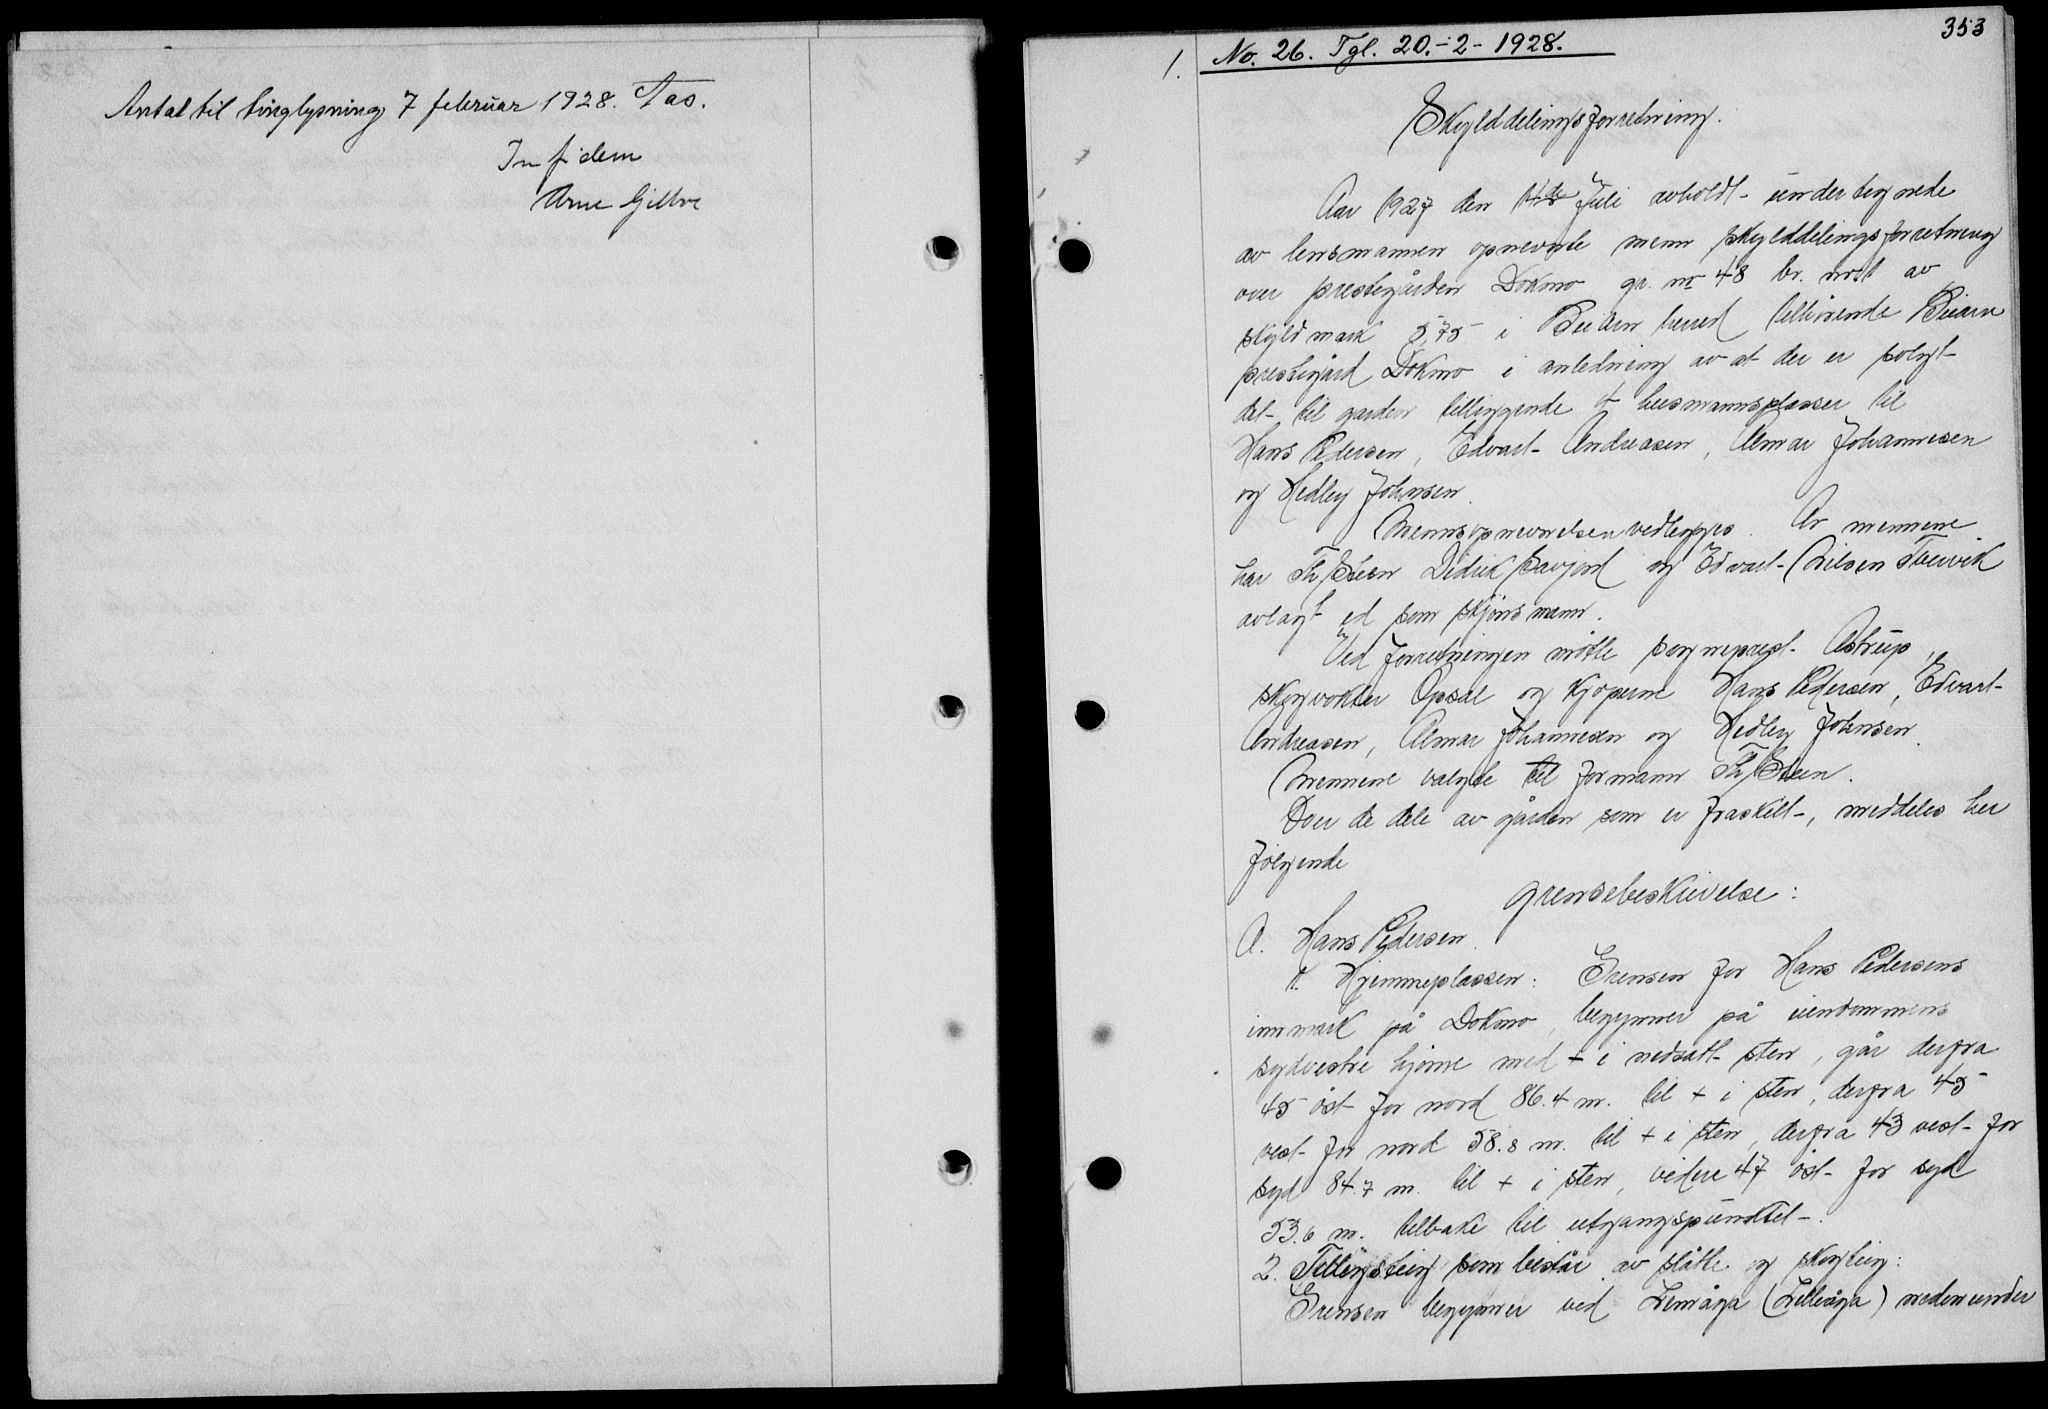 Antat til tinglysning 7 februar 1928. Tas.
In fidem
Arne Gjelbve
353
1. No. 26. Tgl. 20.-2-1928.
Skylddelingsforretning.
Aar 1927 den 14de Juli avholdt undertegnede
av lensmannen opnevnte menn skylddelingsforretning
over prestegården Dokmo gr. nr 48 br. nr 1 av
skyld mark 5,75 i Beiarn herred tilhörende Beiarn
prestegård Dokmo i anledning av at der er solgt
det til garden tilliggende 4 husmannsplasser til
Hans Pedersen, Edvart Andreasen, Almar Johannesen
og Hedley Johnsen.
Mennsopnevnelsen vedlegges. Av mennene
har Th. Steen Didrik Savjord og Edvart Nilsen Tvervik
avlagt ed som skjönsmann.
Ved forretningen mötte sogneprest Astrup,
skogvokter Opsal og kjöperne Hans Pedersen, Edvart
Andreasen, Almar Johannesen og Hedley Johnsen.
Mennene valgte til formann Th. Steen.
Over de dele av gården som er fraskilt, meddeles her
fölgende
grensebeskrivelse:
A. Hans Pedersen.
1. Hjemmeplassen: Grensen for Hans Pedersens
innmark på Dokmo, begynner på eiendommens
sydvestre hjörne med + i nedsatt sten, går derfra
45 öst for nord 86.4 m. til + i sten, derfra 45
vest for nord 58.8 m. til + i sten, derfra 43 vest for
syd 84.7 m. til + i sten, videre 47 öst for syd
53.6 m. tilbake til utgangspunktet.
2. Tillingsteig som består av slåtte og skogteig:
Grensen begynner ved Lemåga (Lilleåga) nedenunder